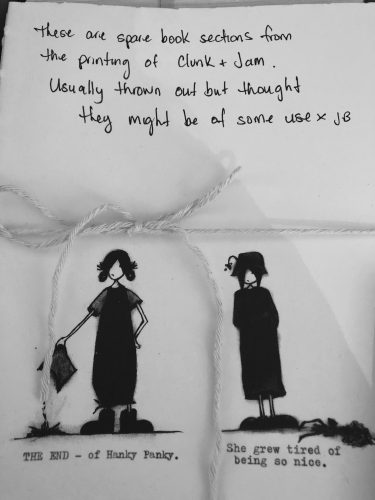 These are spare book sections from
the printing of Clunk + Jam.
Usually thrown out but thought
they might be of some use x JB
THE END - of Hanky Panky.
She grew tired of
being so nice.